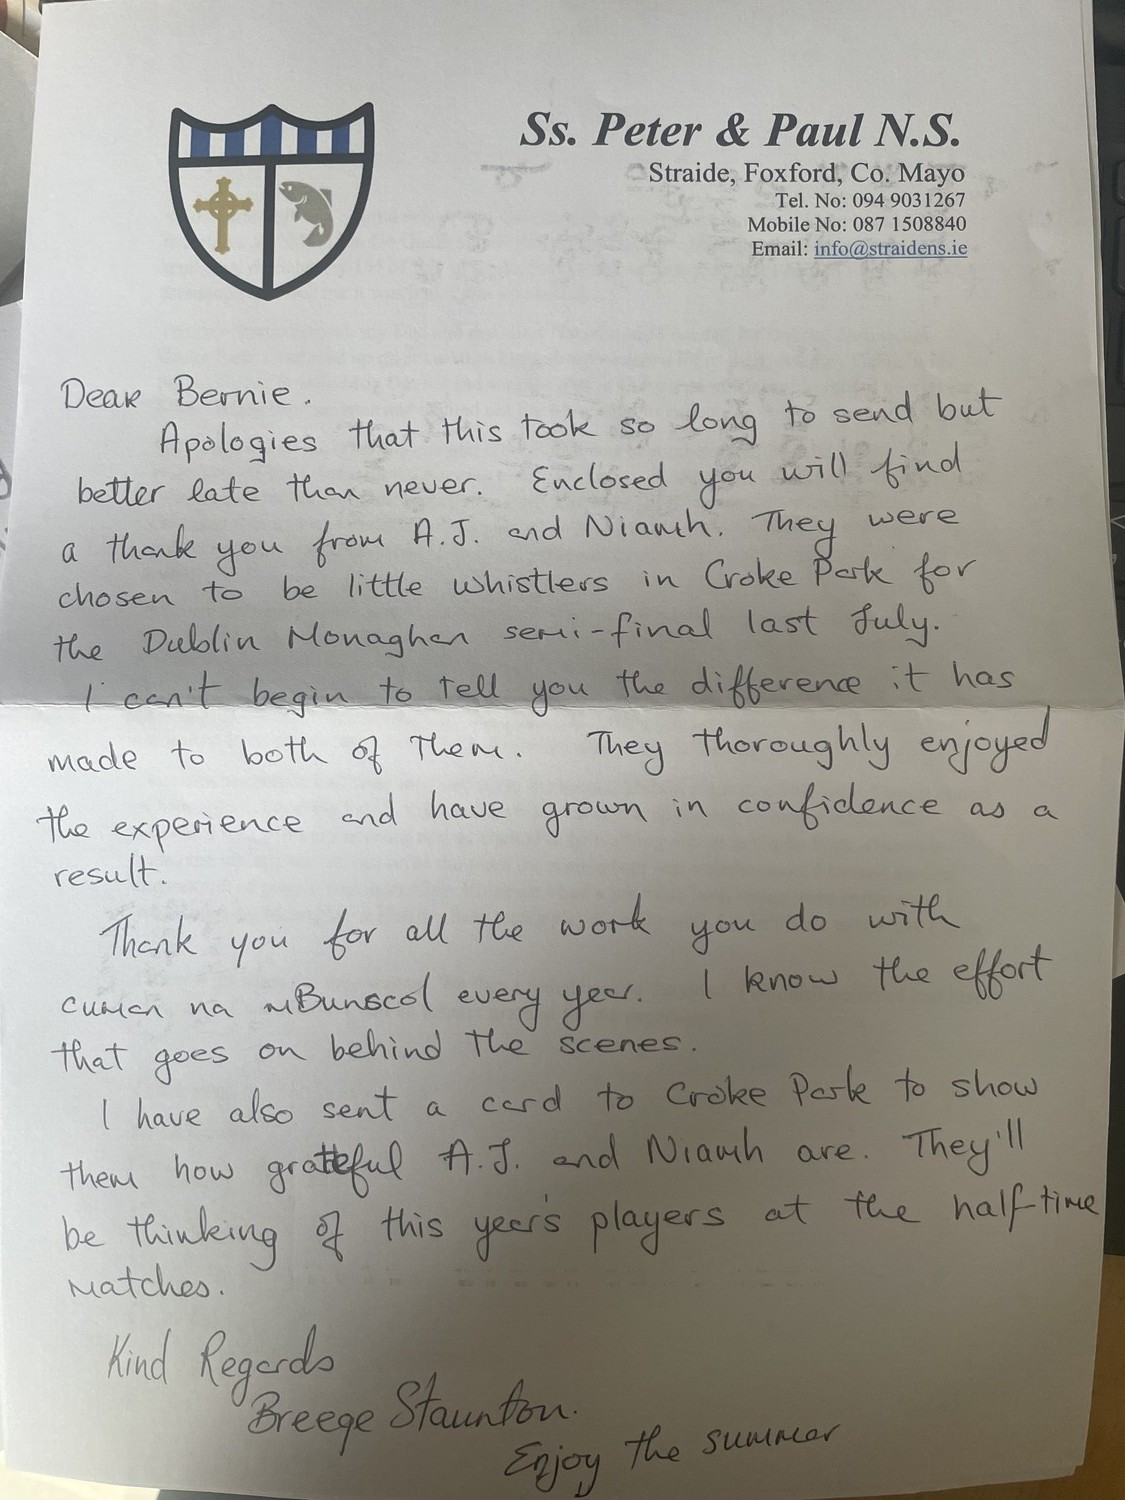 Ss. Peter & Paul N.S.
Straide, Foxford, Co. Mayo
Tel. No: 094 9031267
Mobile No: 087 1508840
Email: info@straidens.ie
Dear Bernie.
Apologies that this took so long to send but
better late than never. Enclosed you will find
a thank you from A.J. and Niamh. They were
chosen to be little whistlers in Croke Park for
the Dublin Monaghan semi-final last July.
I can't begin to tell you the difference it has
made to both of them. They thoroughly enjoyed
the experience and have grown in confidence as a
result.
Thank you for all the work you do with
cuman na mBunscol every year. I know the effort
that goes on behind the scenes.
I have also sent a card to Croke Park to show
them how grateful A.J. and Niamh are. They'll
be thinking of this year's players at the half-time
matches.
Kind Regards
Breege Staunton.
Enjoy the summer